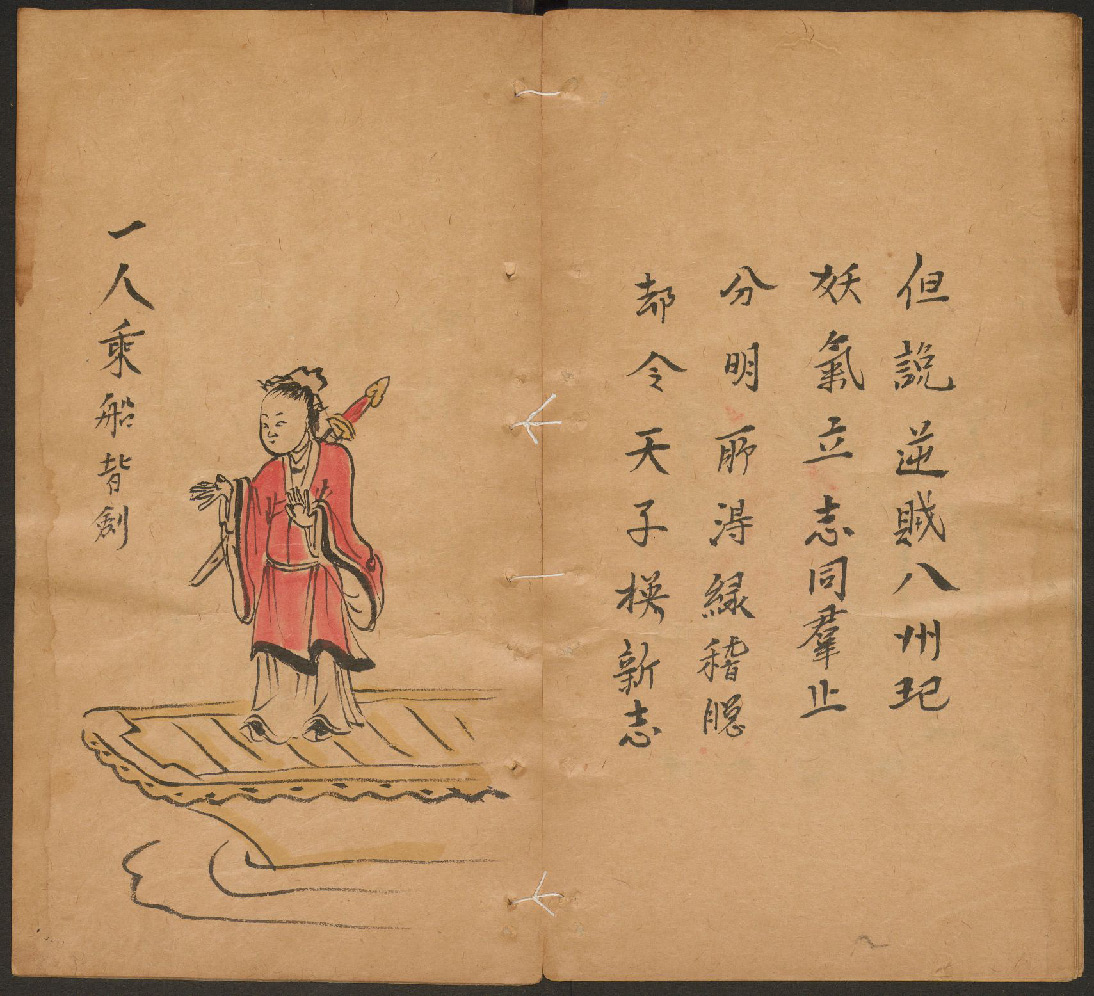 但說逆賊八州圯
妖氣立志同羣止
分明所得緑稽
都令天子新志
一人乘船背劍